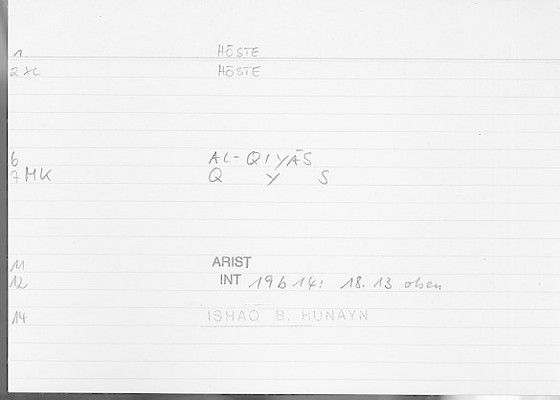 1 HÖSTE
2 HÖSTE
6 AL-QIYĀS
7 MK Q Y S
11 ARIST
12 INT 19b14: 18.13 oben
14 ISHAQ B. HUNAYN